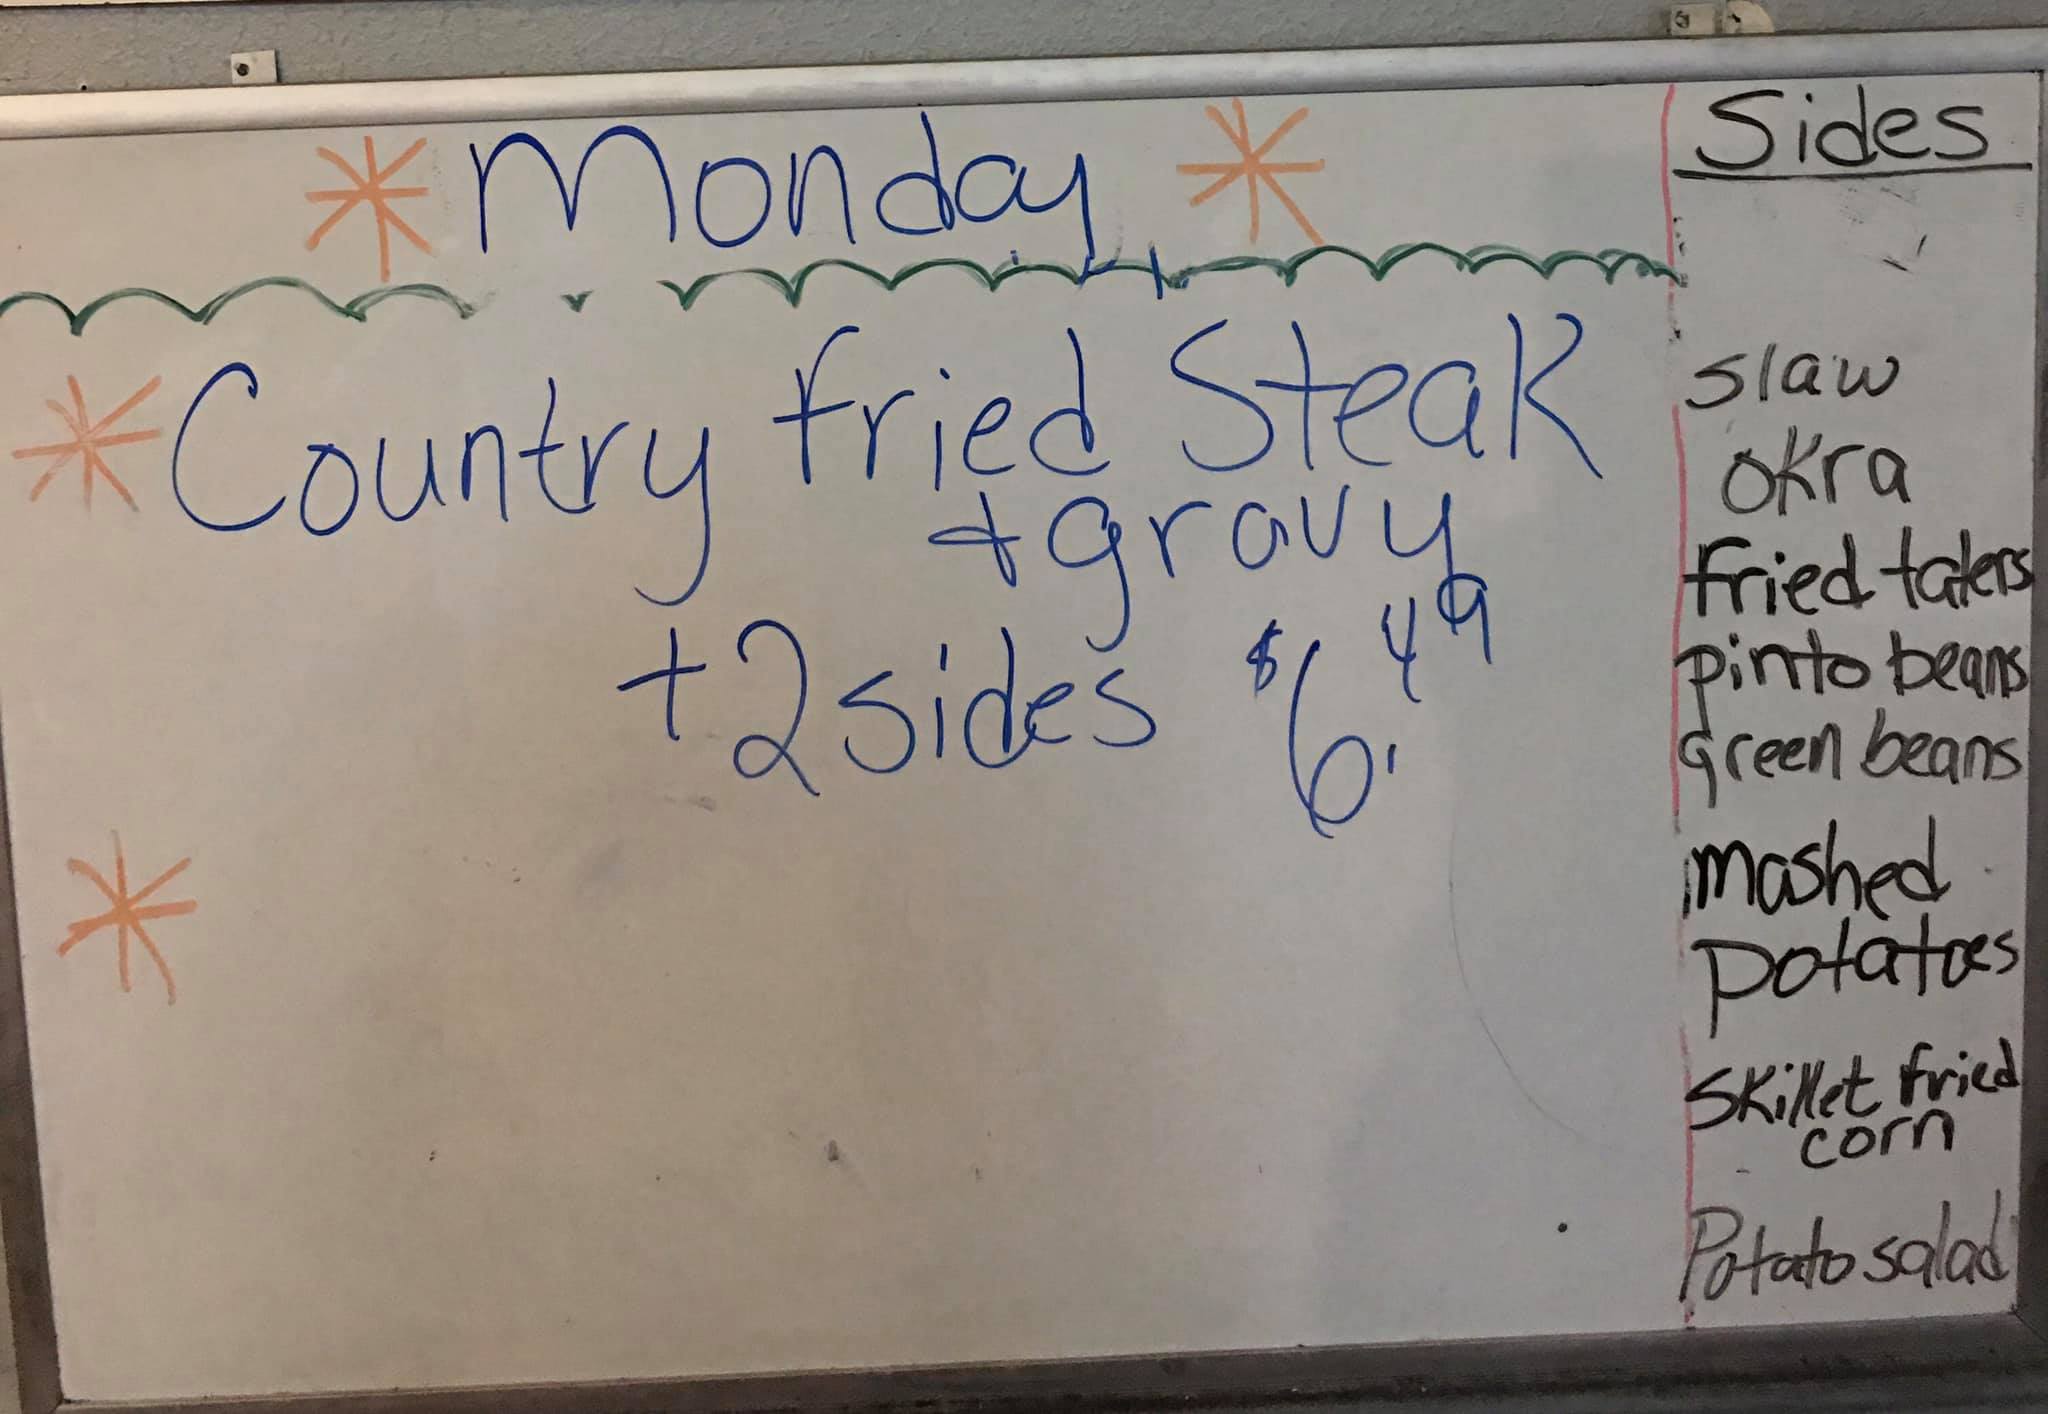 Monday
Country fried Steak
+ gravy
+ 2 sides $6.49
Sides
slaw
okra
fried taters
pinto beans
green beans
mashed
potatoes
Skillet fried
corn
Potato salad